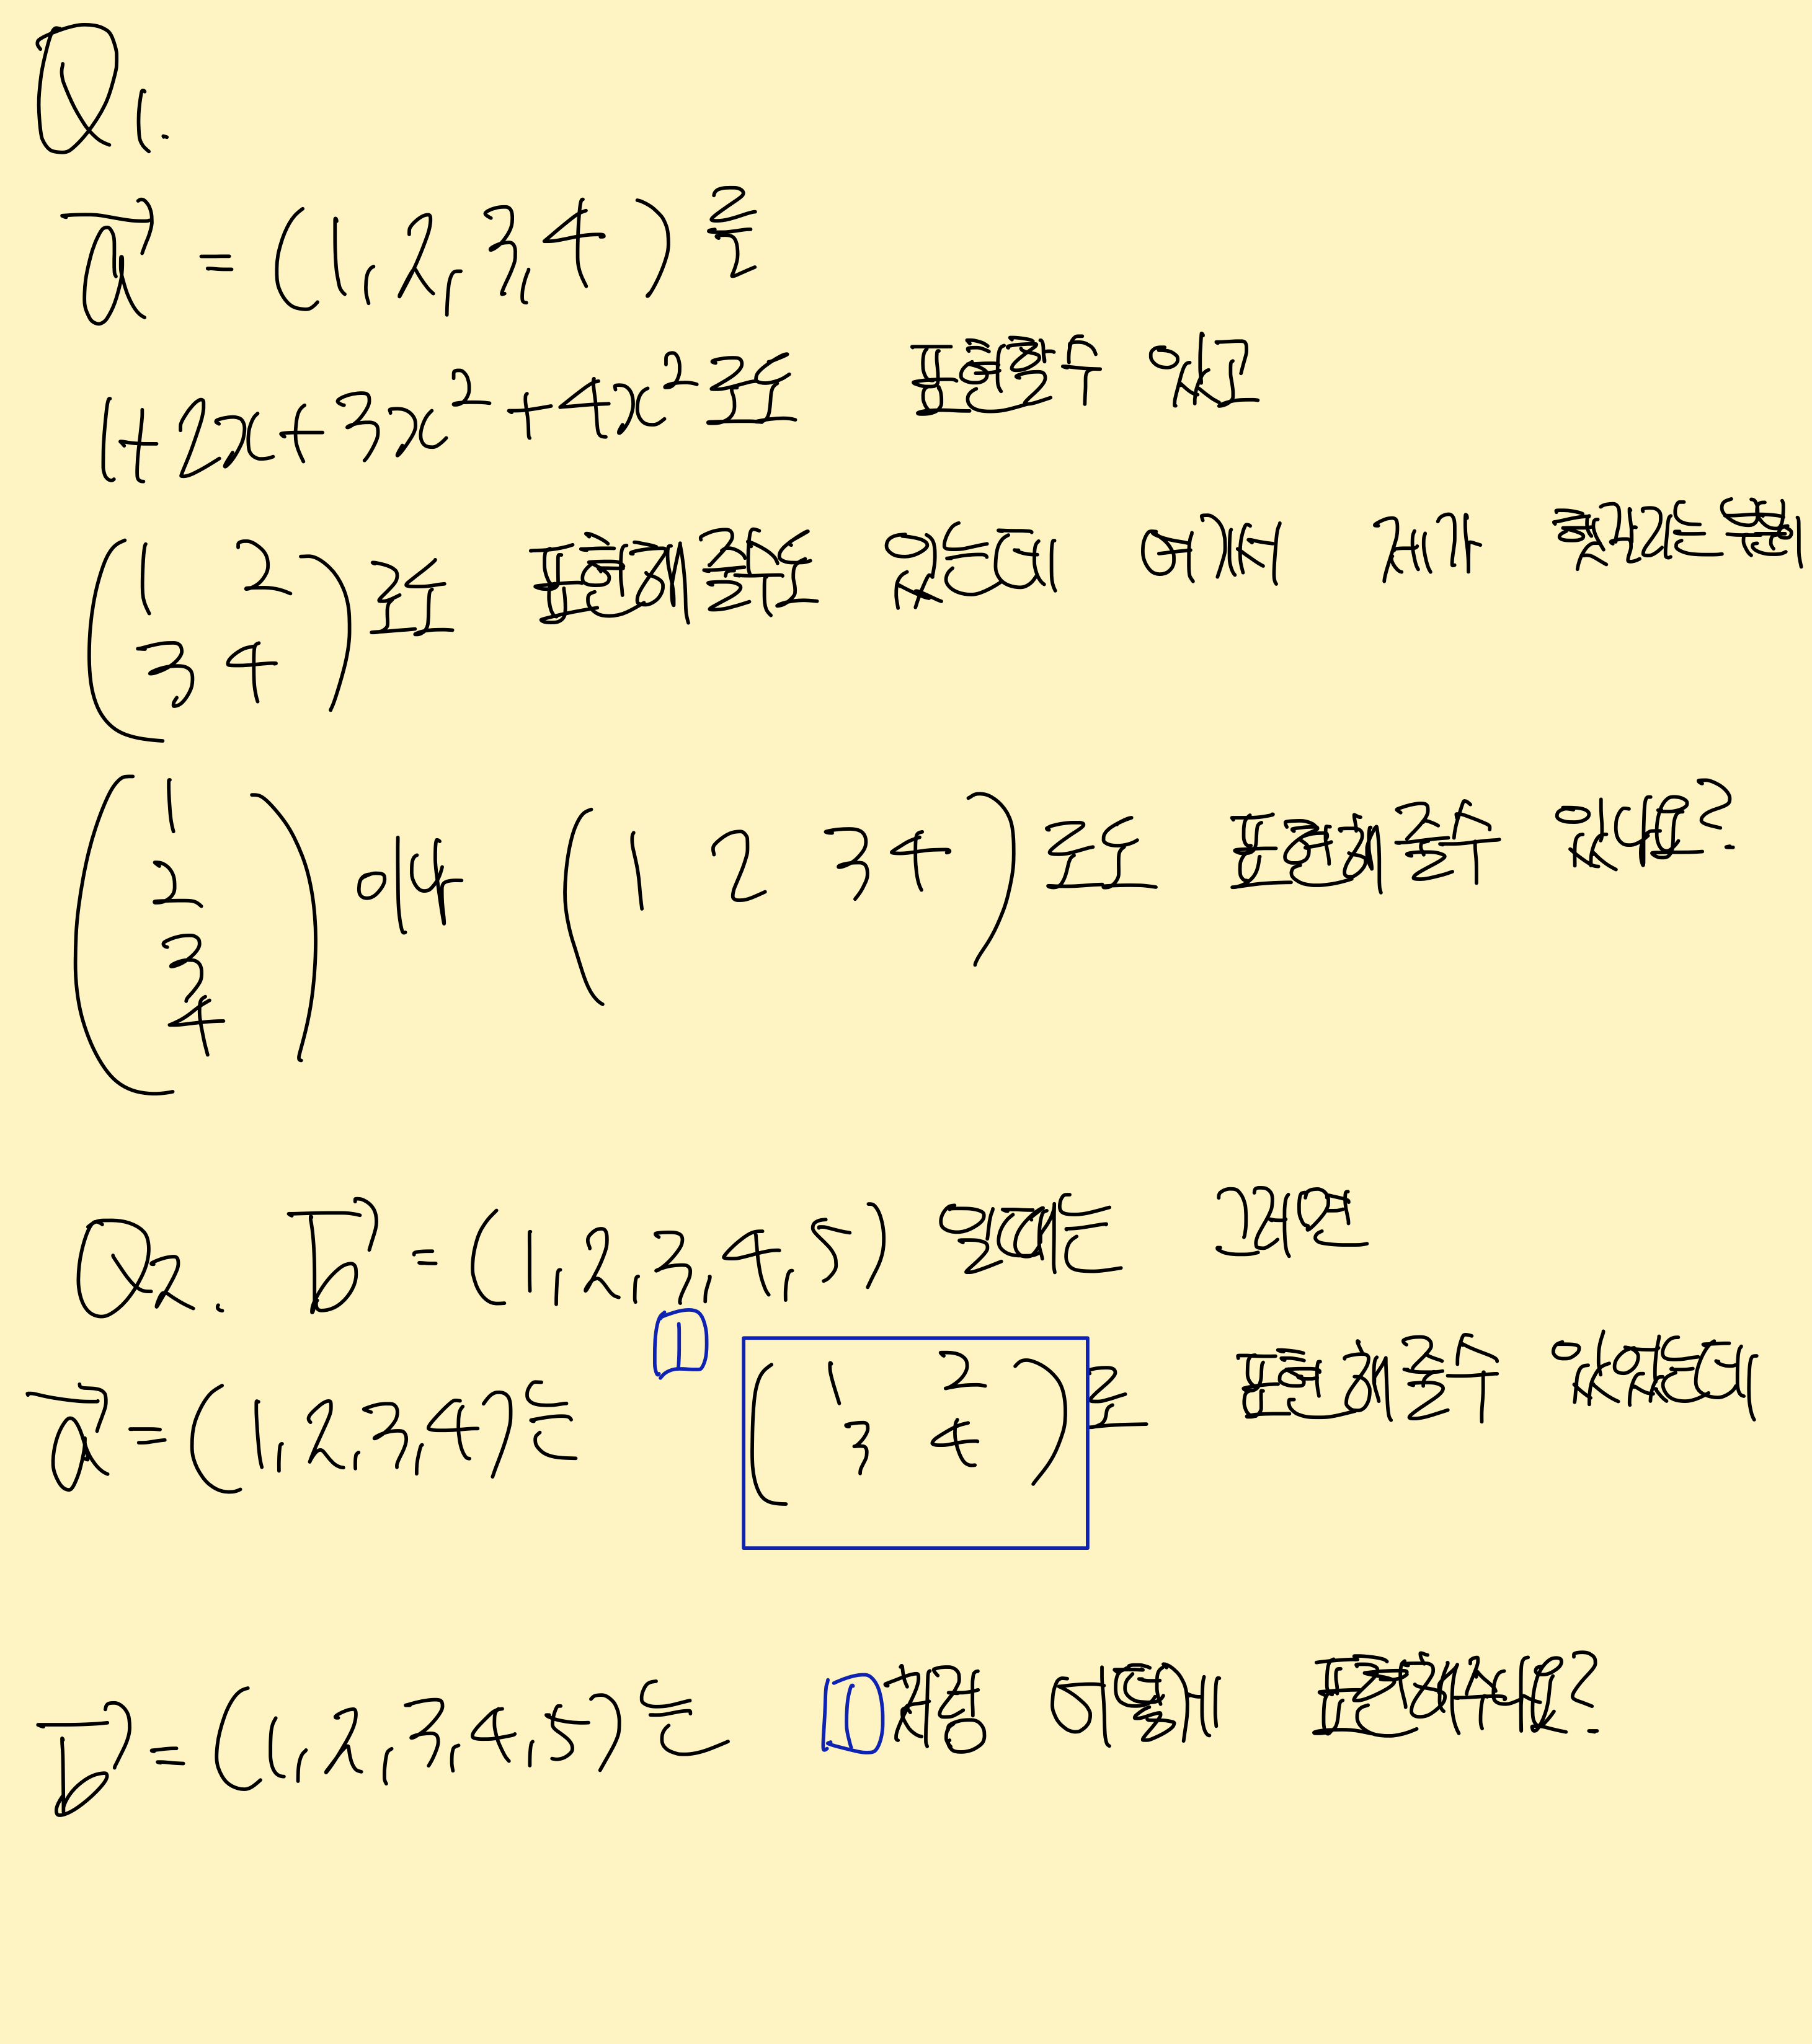 Q1.
a⃗ = (1, 2, 3, 4)를
1+2x+3x²+4x²로도 표현할수 있고
(1 2
3 4)로도 표현해줄수도 있는데 여기서 제가 궁금한
(1
2
3
4) 이나 (1 2 3 4)로도 표현해줄수 있나요?
Q2. b⃗ = (1, 2, 3, 4, 5)일때는 그러면
a⃗ = (1, 2, 3, 4)는 ① (1 2
3 4)로 표현해줄수 있었는데
b⃗ = (1, 2, 3, 4, 5)는 ①처럼 어떻게 표현하나요?